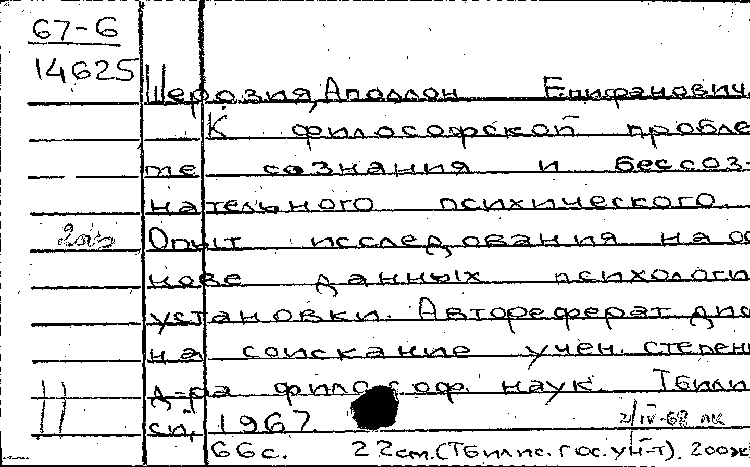 67-6
14625
Шерозия, Аполлон Епифанович.
К философской пробле-
ме сознания и бессоз-
нательного психического.
Опыт исследования на ос
нове данных психологи
установки. Автореферат дис
на соискание учен. степени
д-ра философ. наук. Тбили
си, 1967.
2/IV-68 лк
66с. 22см. (Тбилис. гос. ун-т). 200эк